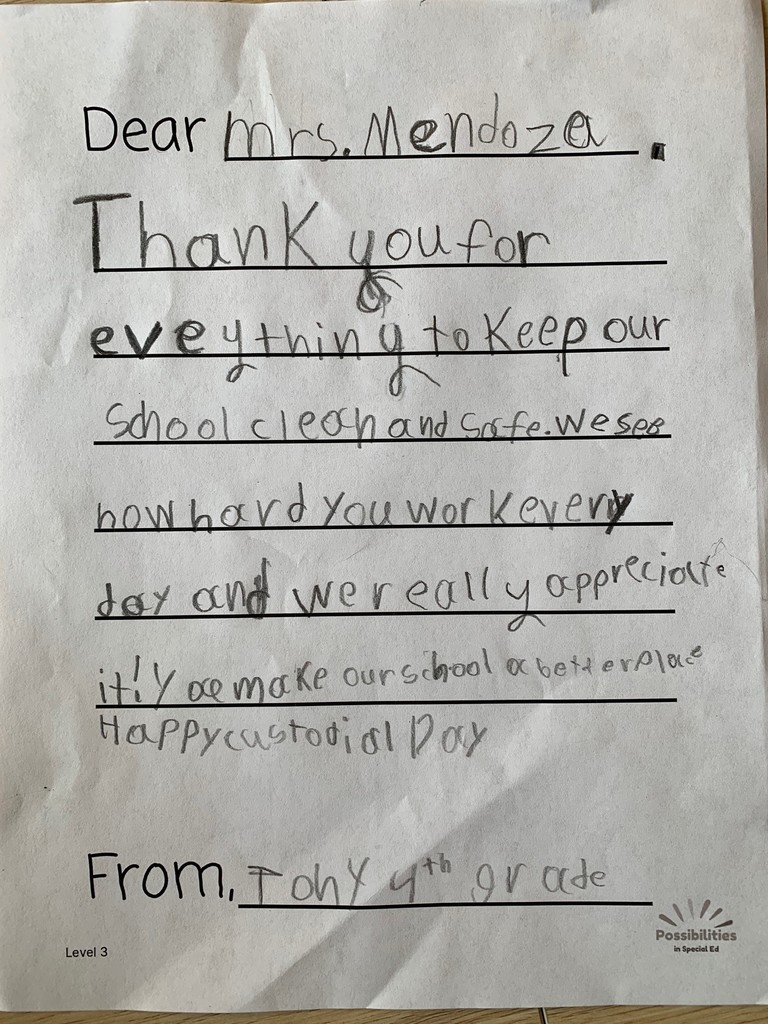 Dear Mrs. Mendoza.
Thank you for
eveything to keep our
School clean and safe. We see
how hard you work every
day and we really appreciate
it! You make our school a better place
Happy custodial Day
From, Tony 4th grade
Level 3
Possibilities
in Special Ed